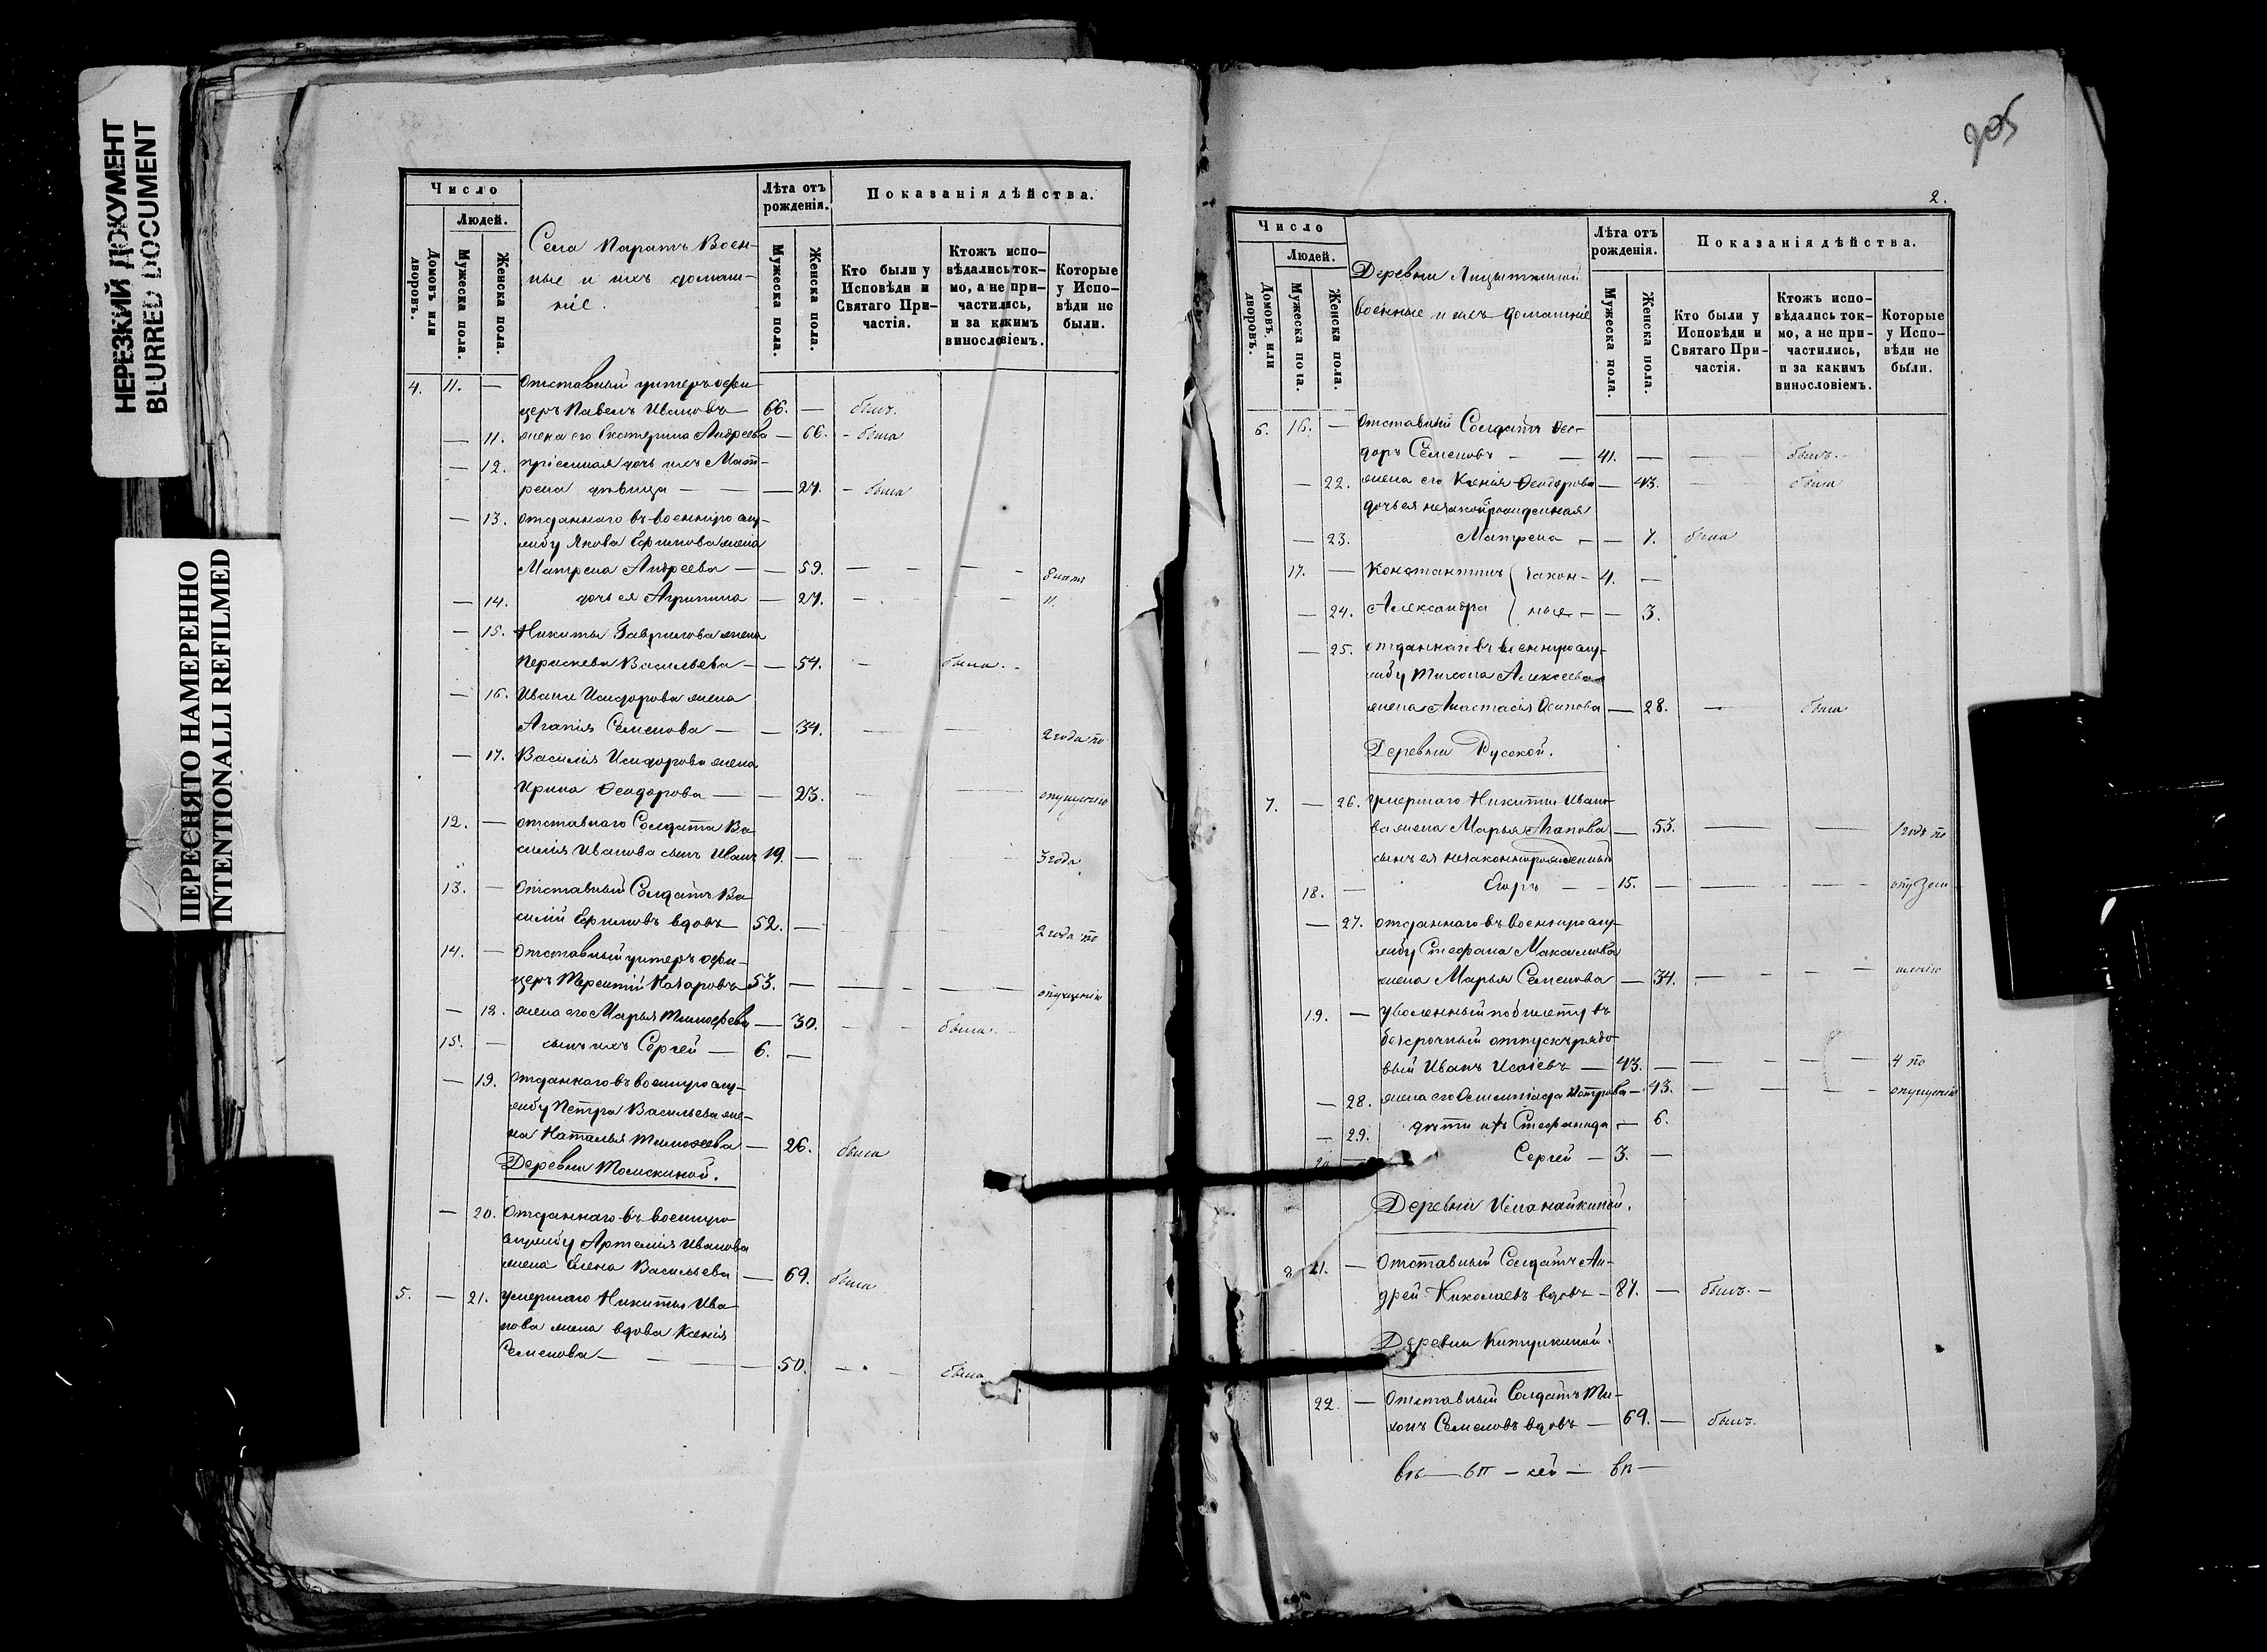 НЕРЕЗКИЙ ДОКУМЕНТ
BLURRED DOCUMENT
ПЕРЕСНЯТО НАМЕРЕННО
INTENTIONALLI REFILMED
Число
Людей.
Домовъ или дворовъ.
Мужеска пола.
Женска пола.
Села Паратъ Воен-
ные и ихъ домаш-
ніе.
Лѣта отъ рожденія.
Мужеска пола.
Женска пола.
Показанія дѣйства.
Кто были у Исповѣди и Святаго При-частія.
Ктожъ испо-вѣдались ток-мо, а не при-частились, и за какимъ винословіемъ.
Которые у Испо-вѣди не были.
4. 11. — Отставный унтеръ офи-
церъ Павелъ Ивановъ — 66. — былъ.
— 11. жена его Екатерина Андреева — 66. - была
— 12. пріемная дочь ихъ Мат-
рена дѣвица — — — 27. - была
— 13. отданнаго въ военную слу-
жбу Якова Ефимова жена
Матрена Андреева — — 59. — - — -
— 14. дочь ея Агрипина — 27. — - - 11.
— 15. Никиты Гаврилова жена
Параскева Васильева — — 54. — была. -
— 16. Ивана Исидорова жена
Агапія Семенова — — 34. — — 2 года по
— 17. Василія Исидорова жена
Ирина Ѳеодорова — — 23. — — опущенію
12. — отставнаго Солдата Ва-
силія Иванова сынъ Иванъ 19. — 3 года
13. — Отставный Солдатъ Ва-
силій Ефимовъ вдовъ 52. — 2 года по
14. — Отставный унтеръ офи-
церъ Терентій Назаровъ 53. — опущенію
— 18. жена его Марья Тимофеева — 30. — - была. -
15. — сынъ ихъ Сергей — 6. —
— 19. Отданнаго въ военную слу-
жбу Петра Васильева же-
на Наталья Тимофеева — 26. была
Деревни
— 20. Отданнаго въ военную
службу Артемія Иванова
жена Елена Васильева — 69. была
5. — 21. умершаго Никиты Ива-
нова жена вдова Ксенія
Семенова — — 50. — - была
205
2.
Число
Людей.
Домовъ или дворовъ.
Мужеска пола.
Женска пола.
Деревни
военные и ихъ домашніе
Лѣта отъ рожденія.
Мужеска пола.
Женска пола.
Показанія дѣйства.
Кто были у Исповѣди и Святаго При-частія.
Ктожъ испо-вѣдались ток-мо, а не при-частились, и за какимъ винословіемъ.
Которые у Испо-вѣди не были.
6. 16. — Отставный Солдатъ Ѳео-
доръ Семеновъ — — 41. — — былъ. -
— 22. жена его Ксенія Ѳеодорова — 43. — была
дочь ея незаконнорожденная
— 23. Матрена — — 7. была
17. — Константинъ } закон- 4. —
— 24. Александра } ные — — 3.
— 25. отданнаго въ военную слу-
жбу Тихона Алексеева
жена Анастасія Осипова — 28. — была
Деревни Русской.
7. — 26. Умершаго Никиты Ивано-
ва жена Марья Агапова — 53. — — 1 годъ по
сынъ ея незаконнорожденный
18. — Егоръ — — 15. — — - — —
— 27. отданнаго въ военную слу-
жбу Стефана Максимова
жена Марья Семенова — 34. — - - —
19. — уволенный по билету въ
безсрочный отпускъ рядо-
вый Иванъ Исаіевъ — 43. — — — — 4 по
— 28. жена его Петрова — 43. — — — опущенію
— 29. дѣти ихъ Стефанида — 6.
20 — Сергей — 3. —
Деревни
8 21. — Отставный Солдатъ Ан-
дрей Николаевъ вдовъ — 87. — былъ. —
Деревни
22. — Отставный Солдатъ Ти-
хонъ Семеновъ вдовъ — 69. — былъ.